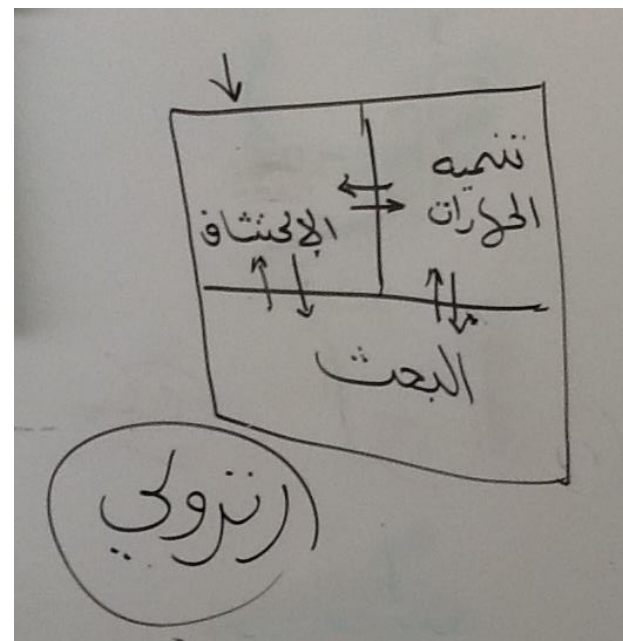 تنمية
المهارات
الإكتشاف
البحث
رنزولي